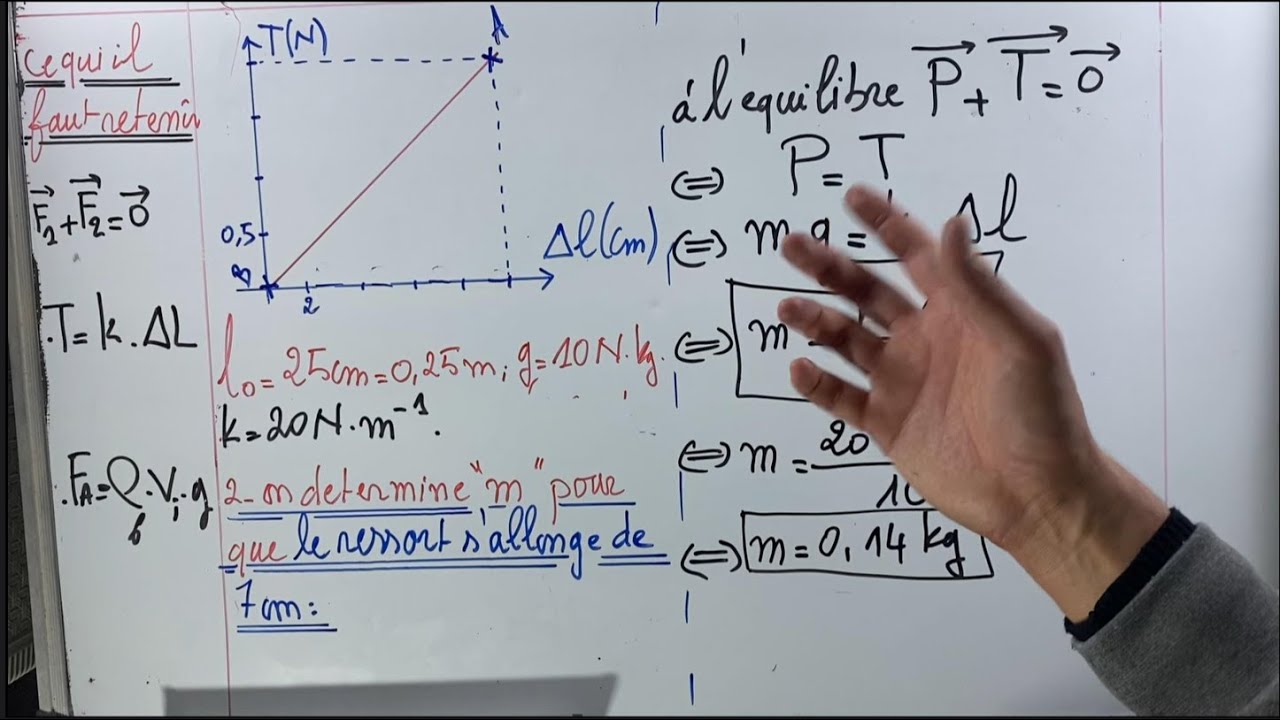 ce qui il
faut retenir
F₁+F₂=0
.T=k.ΔL
.F_A=ρ_b.V_i.g
T(N)
A
0,5
B
2
Δl(cm)
l₀=25cm=0,25m; g=10N.kg
k=20N.m⁻¹.
2-on determine "m" pour
que le ressort s'allonge de
7cm:
á l'équilibre P+T=0
⇔ P=T
⇔ mg= Δl
⇔ m=
⇔ m=20
10
⇔ m=0,14 kg